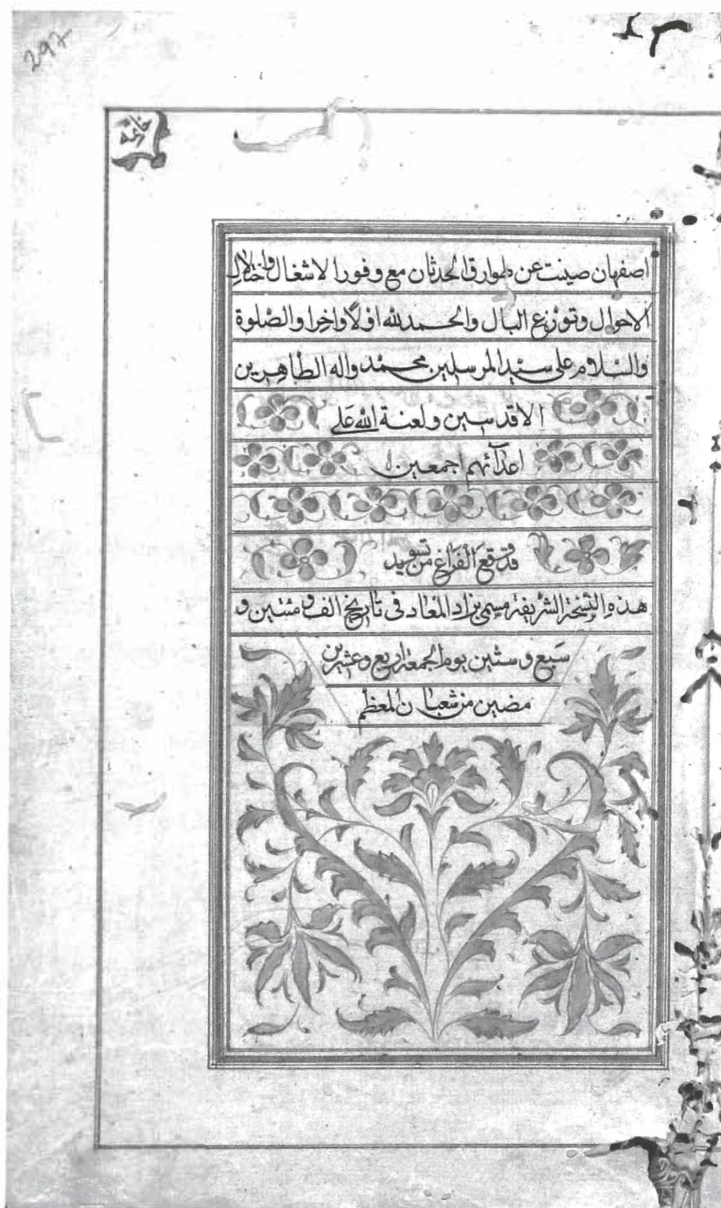 297
خاتمه
اصفهان صينت عن طوارق الحدثان مع وفور الاشغال واختلال
الاحوال وتوزع البال والحمد لله اولا واخرا والصلوة
والسلام على سيد المرسلين محمد واله الطاهرين
الاقدسين ولعنة الله على
اعدائهم اجمعين
قد وقع الفراغ من تسويد
هذه النسخة الشريفة مسمى بزاد المعاد فى تاريخ الف و مئتين و
سبع وستين يوم الجمعة اربع وعشرين
مضين من شعبان المعظم